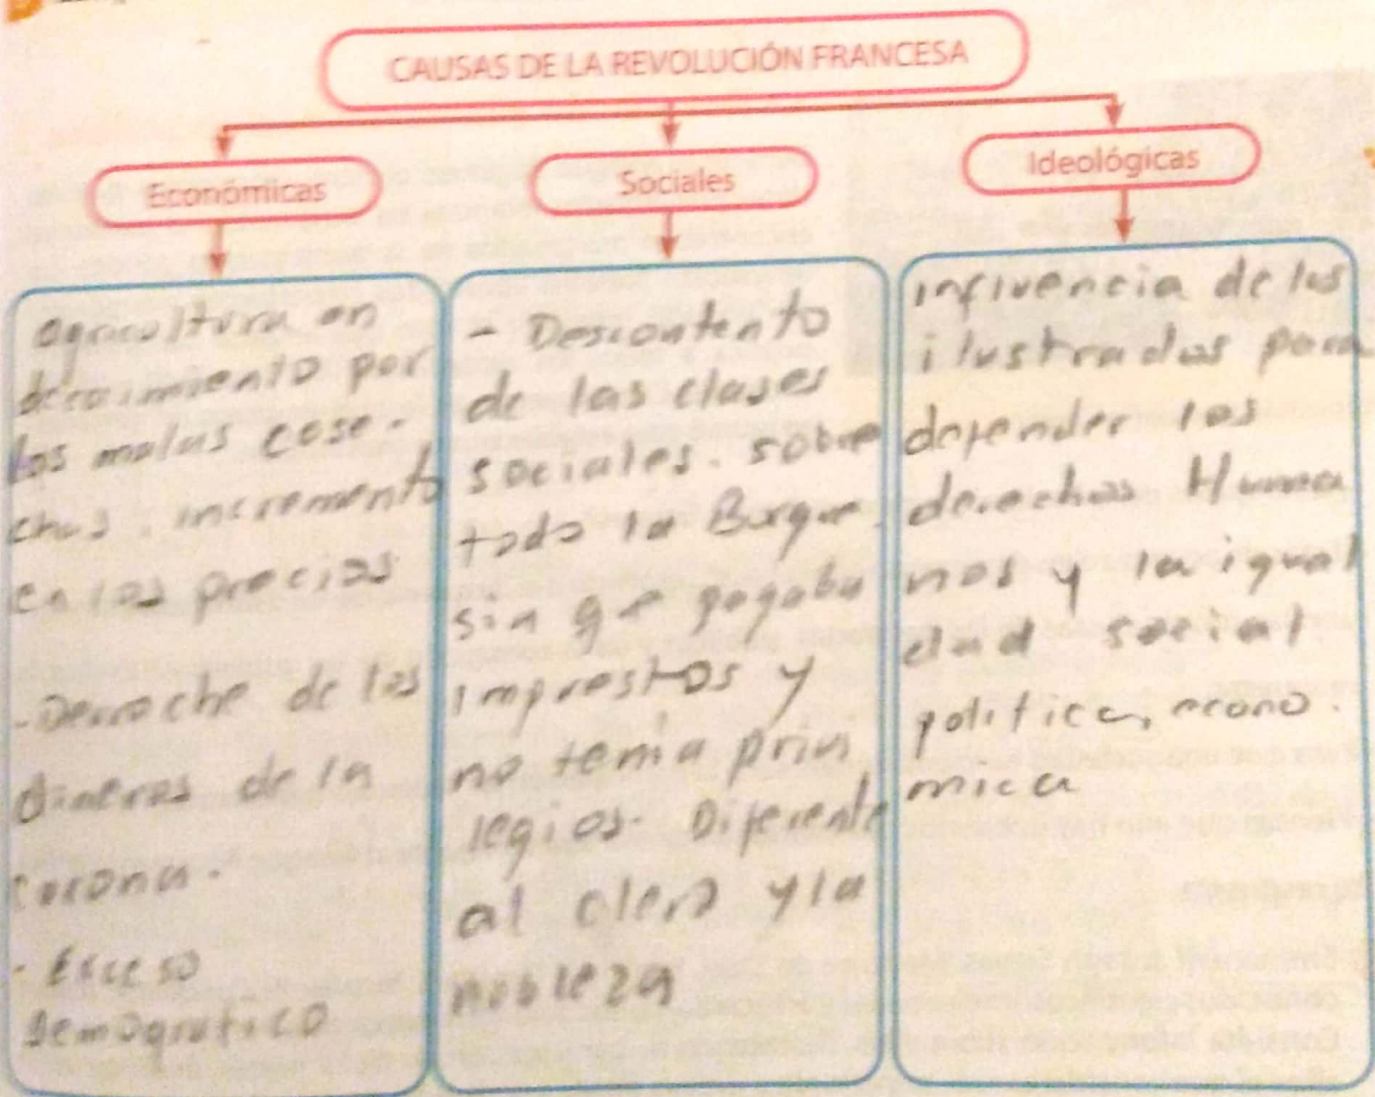 CAUSAS DE LA REVOLUCIÓN FRANCESA
Económicas
Sociales
Ideológicas
agricultura en
decaimiento por
las malas cose-
chas. incremento
en los precios
- Derroche de los
dineros de la
corona.
- Exceso
demografico
- Descontento
de las clases
sociales. sobre
todo la Burgue.
sia que pagaba
imprestos y
no tenia privi
legios. Diferente
al clero y la
nobleza
influencia de los
ilustrados para
defender los
derechos Huma
nos y la igual
dad social
politica, econo.
mica